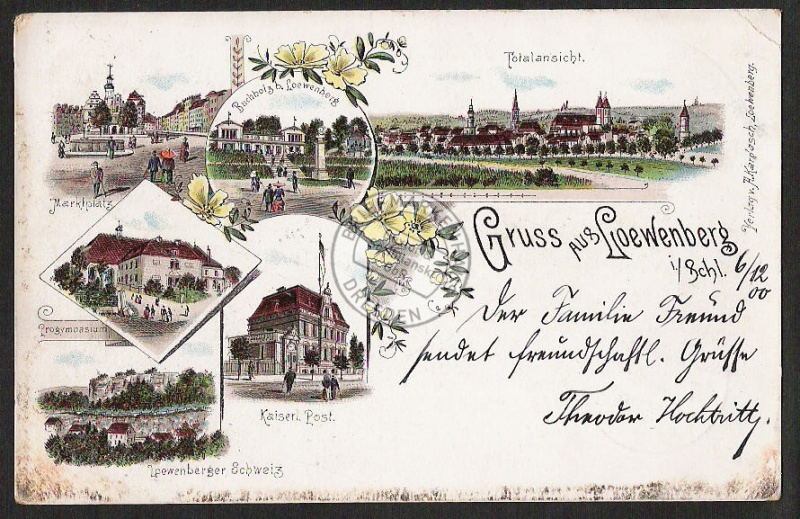 Totalansicht.
Buchholz b. Loewenberg.
Marktplatz
Gruss aus Loewenberg
i/Schl.
6/12
00
Der Familie Freund
sendet freundschaftl. Grüsse
Theodor Hochtritt
Progymnasium
Kaiserl. Post.
Loewenberger Schweiz
Verlag v. Loewenberg.
DRESDEN